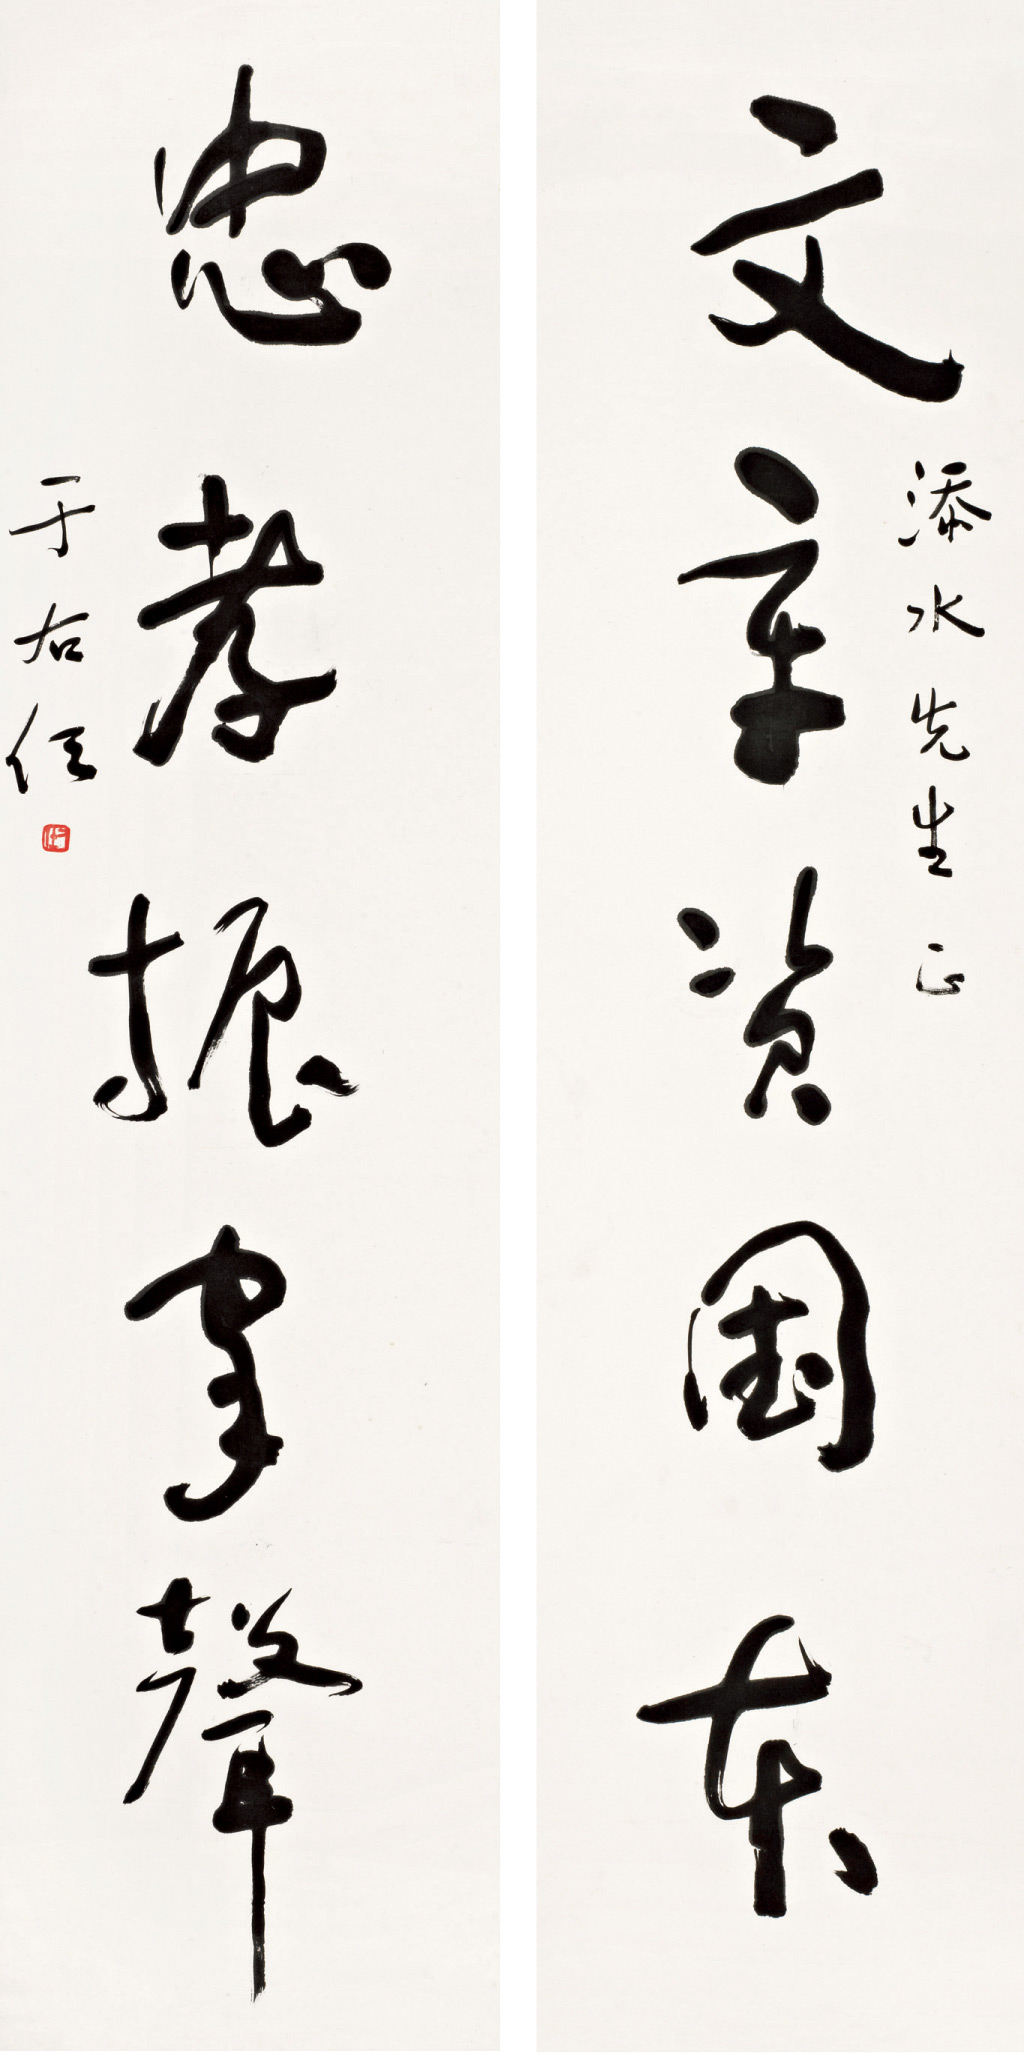 文章資國本
添水先生正
忠孝振家聲
于右任